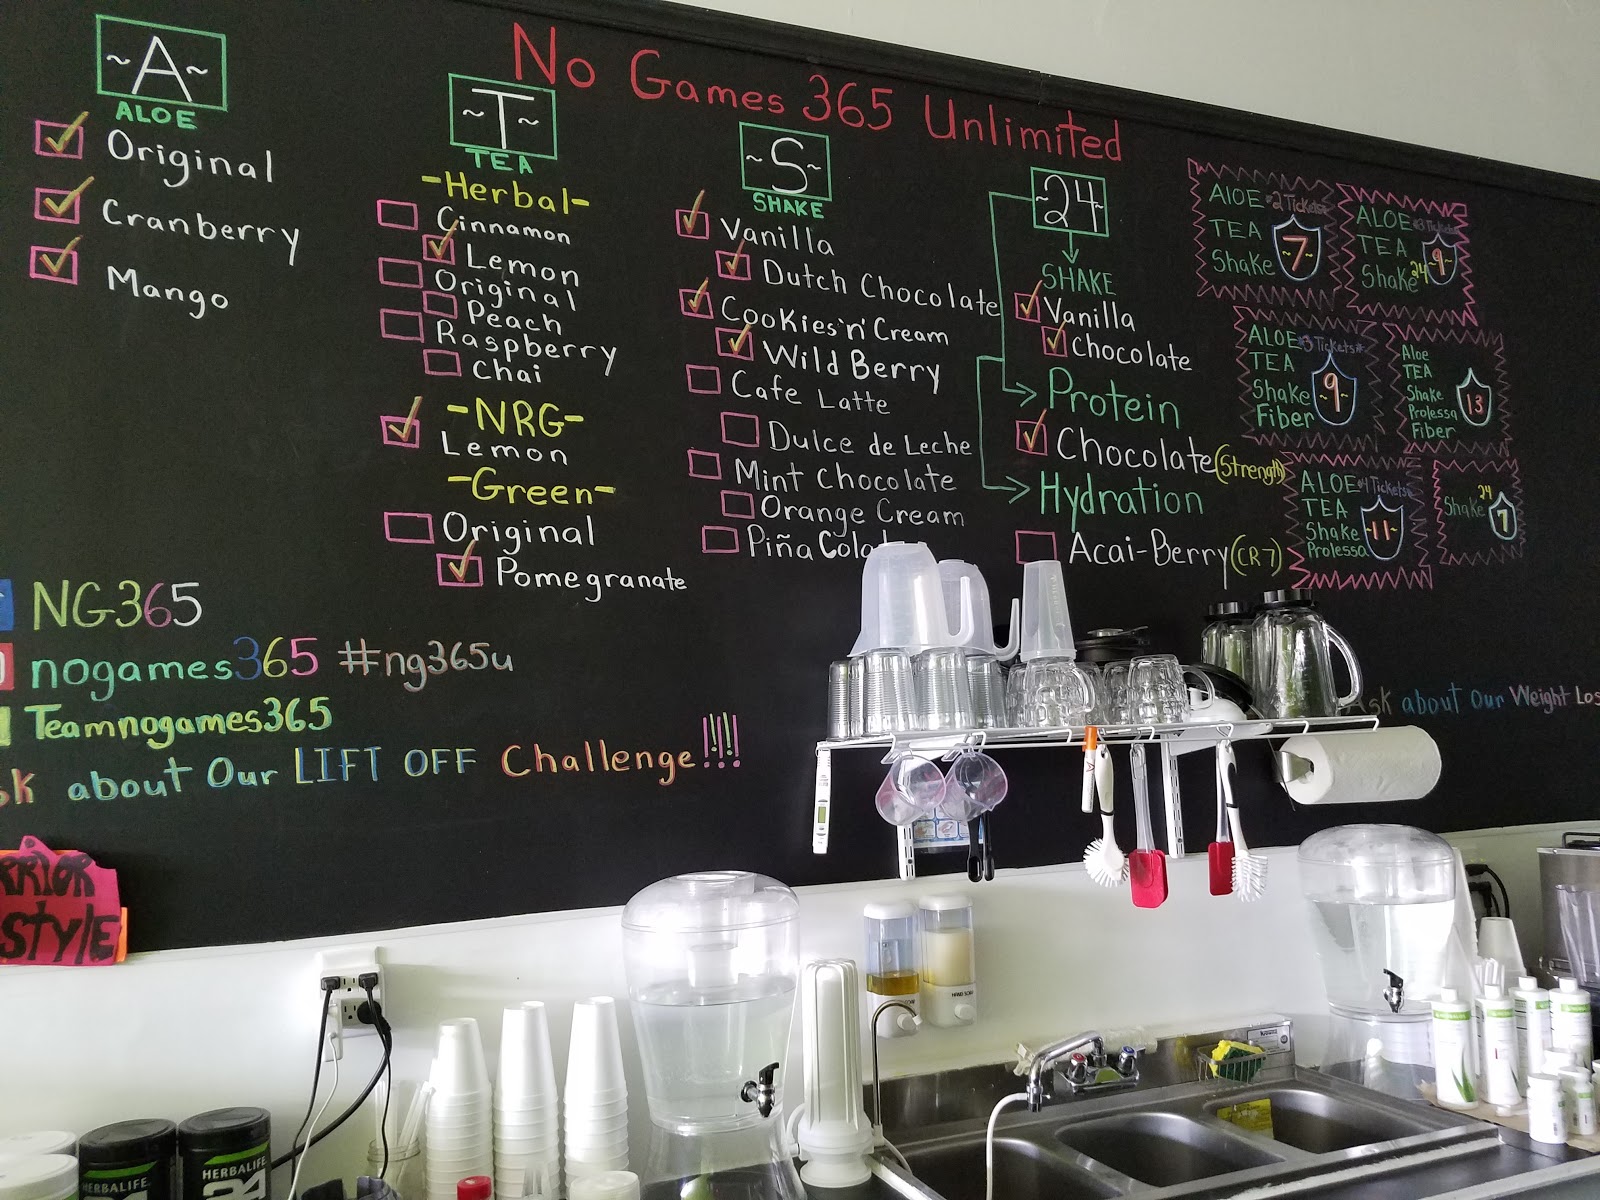 No Games 365 Unlimited
~A~
ALOE
Original
Cranberry
Mango
~T~
TEA
-Herbal-
Cinnamon
Lemon
Original
Peach
Raspberry
Chai
-NRG-
Lemon
-Green-
Original
Pomegranate
~S~
SHAKE
Vanilla
Dutch Chocolate
Cookies'n'Cream
Wild Berry
Cafe Latte
Dulce de Leche
Mint Chocolate
Orange Cream
Piña Cola
~24~
SHAKE
Vanilla
Chocolate
Protein
Chocolate (Strength)
Hydration
Acai-Berry (CR7)
ALOE #2 Tickets#
TEA
Shake
~7~
ALOE #3 Tickets
TEA
Shake 24
~9~
ALOE #3 Tickets#
TEA
Shake
Fiber
~9~
Aloe
TEA
Shake
Prolessa
Fiber
13
ALOE #4 Tickets#
TEA
Shake
Prolessa
~11~
Shake 24
7
NG365
nogames365 #ng365u
Teamnogames365
sk about Our LIFT OFF Challenge!!!!
Ask about Our Weight Los
RRIOR
STYLE
HAND SOAP
HERBALIFE
24
HERBALIFE
24